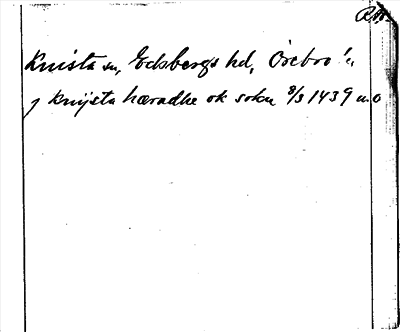 Knista sn, Edsbergs hd, Örebro l.
j knijsta hæradhe ok sokn 8/3 1439 u.o